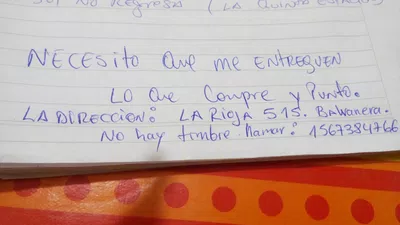 NO REGRESA (LA QUINTA
NECESITO QUE ME ENTREGUEN
LO QUE COMPRE Y PUNTO.
LA DIRECCION: LA RIOJA 515. Balvanera.
No hay timbre llamar: 1567384766